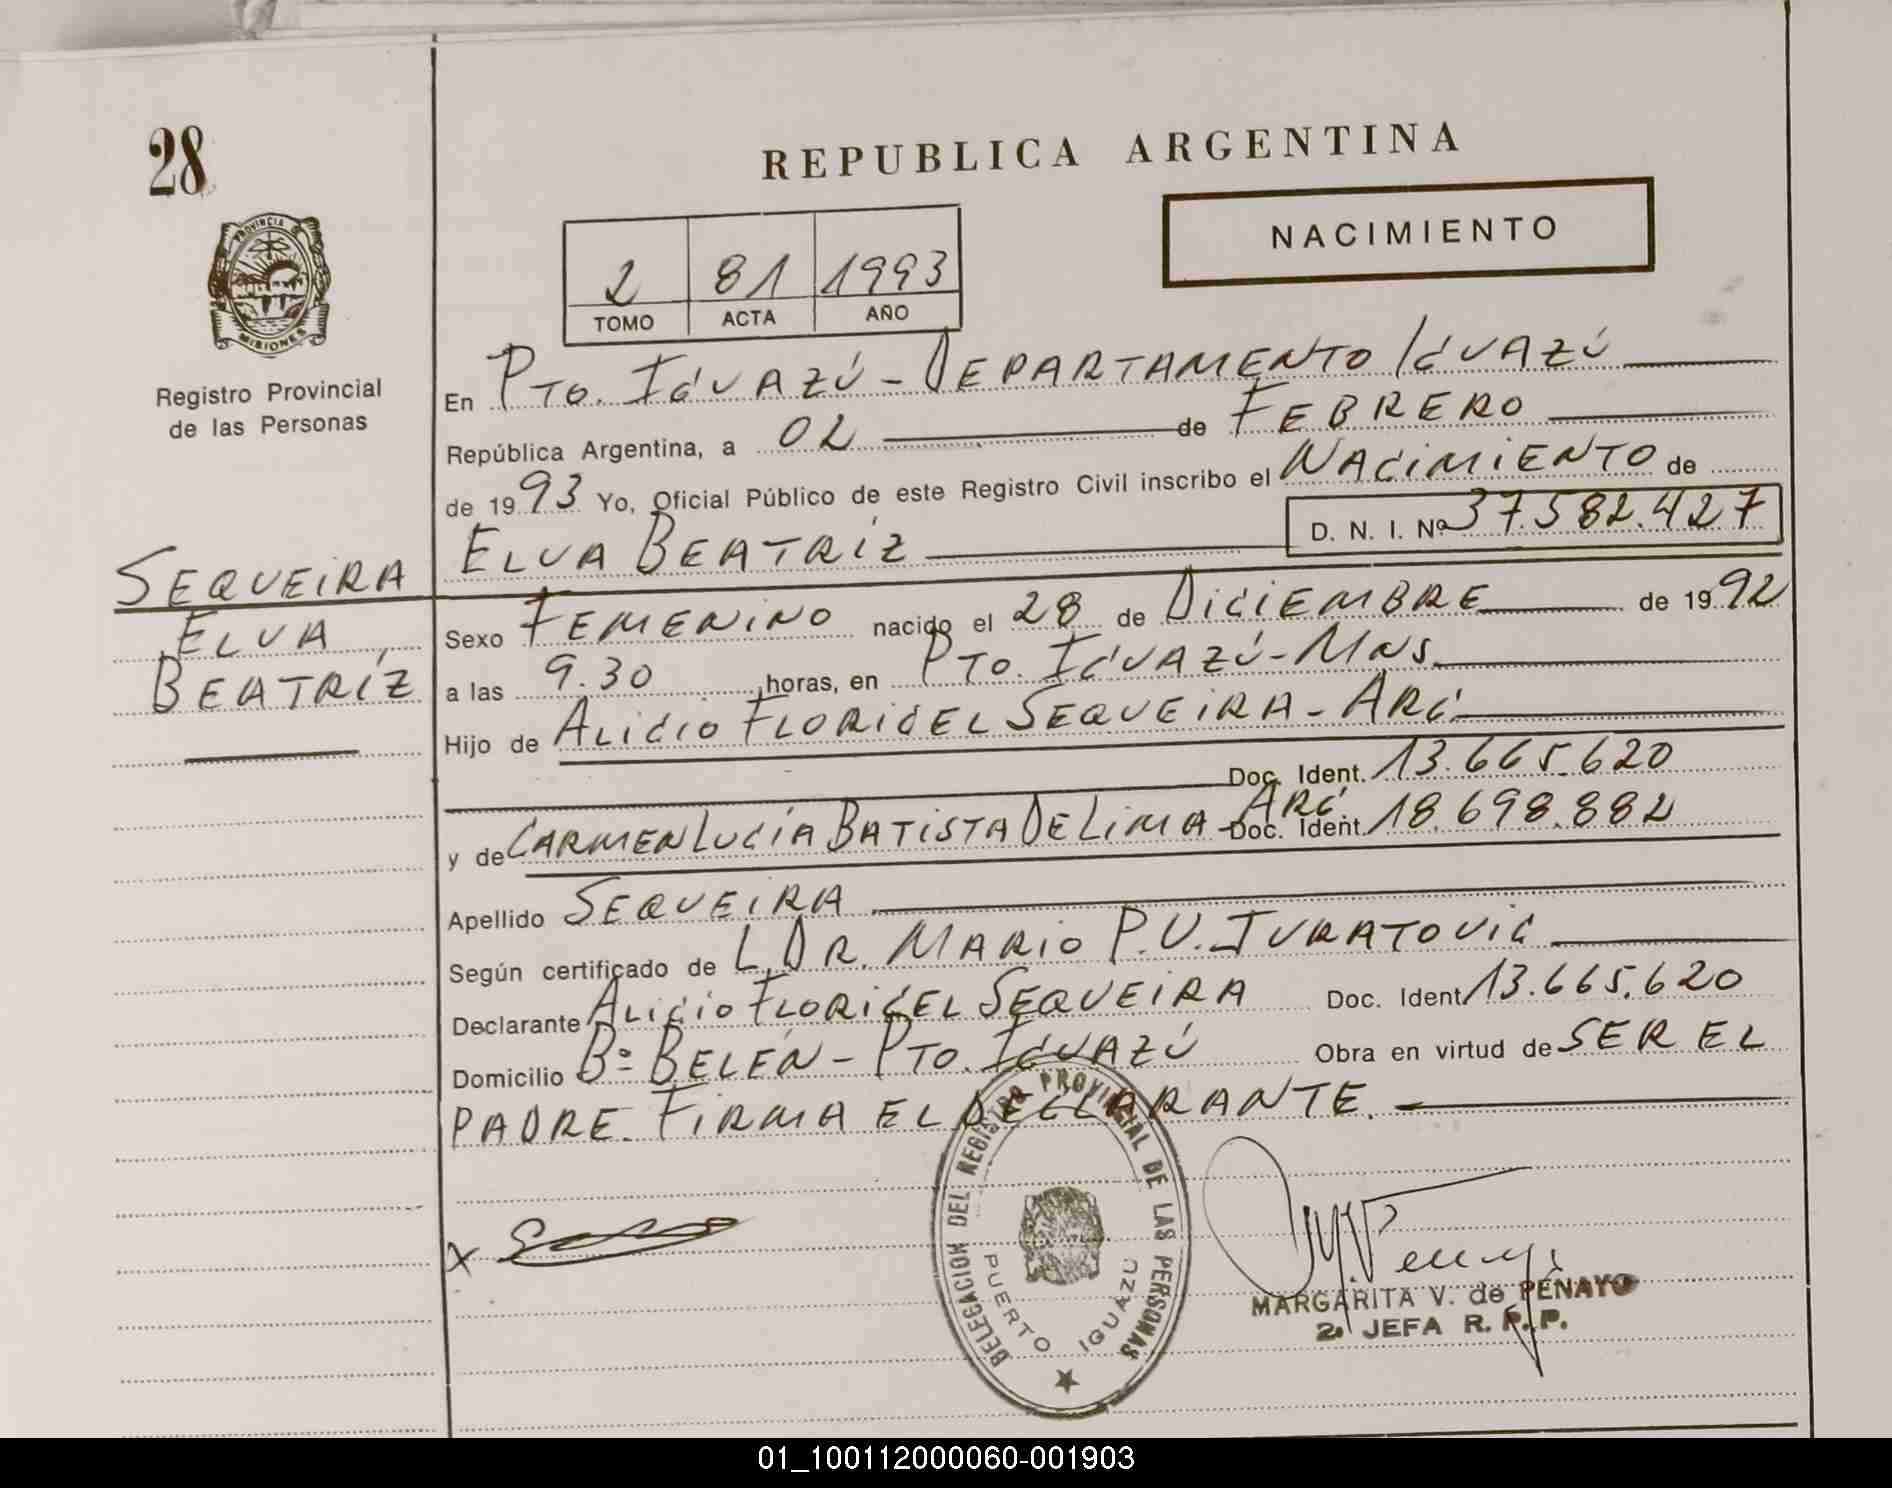 28
REPUBLICA ARGENTINA
NACIMIENTO
PROVINCIA DE
MISIONES
Registro Provincial
de las Personas
2 81 1993
TOMO ACTA AÑO
En PTO. IGUAZÚ - DEPARTAMENTO IGUAZÚ
República Argentina, a 02 de FEBRERO
de 1993 Yo, Oficial Público de este Registro Civil inscribo el NACIMIENTO de
ELVA BEATRÍZ D. N. I. Nº 37.582.427
SEQUEIRA
ELVA
BEATRÍZ
Sexo FEMENINO nacido el 28 de DICIEMBRE de 1992
a las 9.30 horas, en PTO. IGUAZÚ - MNS.
Hijo de ALICIO FLORIGEL SEQUEIRA - ARG.
Doc. Ident. 13.665.620
y de CARMEN LUCÍA BATISTA DE LIMA - ARG. Doc. Ident. 18.698.882
Apellido SEQUEIRA
Según certificado de L. DR. MARIO P. V. JURATOVIC
Declarante ALICIO FLORIGEL SEQUEIRA Doc. Ident 13.665.620
Domicilio Bº BELÉN - PTO. IGUAZÚ Obra en virtud de SER EL
PADRE. FIRMA EL DECLARANTE.
X
DELEGACION DEL REGISTRO PROVINCIAL DE LAS PERSONAS
PUERTO IGUAZU
MARGARITA V. de PENAYO
2. JEFA R. P. P.
01_100112000060-001903